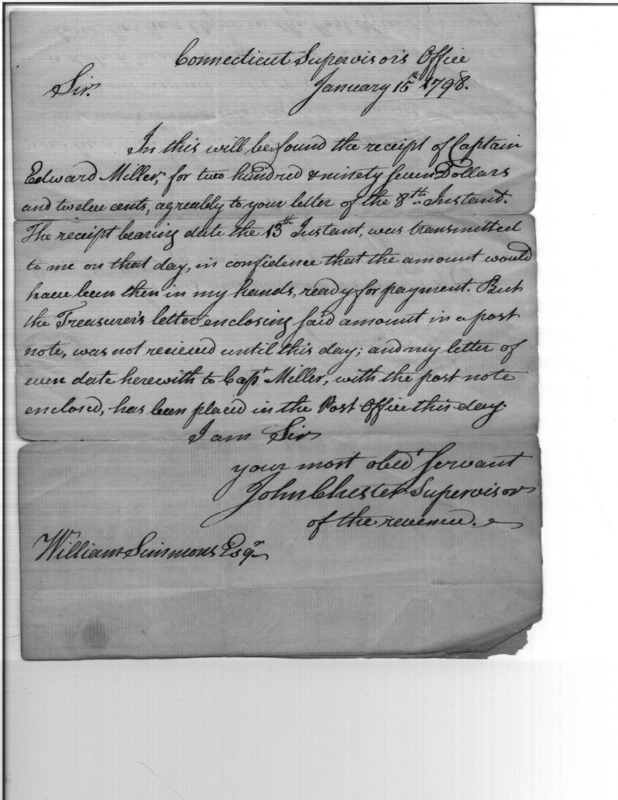 Connecticut Supervisor's Office
Sir. January 15th 1798.
In this will be found the receipt of Captain
Edward Miller, for two hundred & ninety seven Dollars
and twelve cents, agreably to your letter of the 8th Instant.
The receipt bearing date the 13th Instant, was transmitted
to me on that day, in confidence that the amount would
have been then in my hands, ready for payment. But
the Treasurer's letter enclosing said amount in a post
note, was not recieved until this day; and my letter of
even date herewith to Capt Miller, with the post note
enclosed, has been placed in the Post Office this day
I am Sir
your most obedt Servant
John Chester Supervisor
of the revenue.
William Simmons Esqr